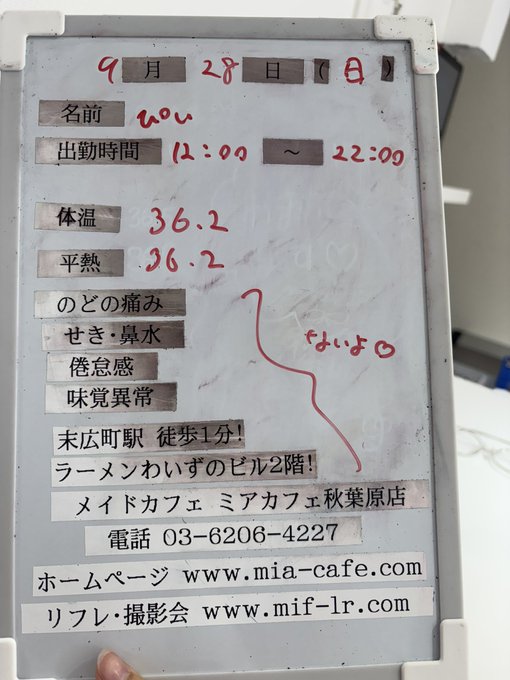 9月28日(日)
名前 ぴぴ
出勤時間 12:00 ~ 22:00
体温 36.2
平熱 36.2
のどの痛み
せき・鼻水
ないよ♡
倦怠感
味覚異常
末広町駅 徒歩1分!
ラーメンわいずのビル2階!
メイドカフェ ミアカフェ秋葉原店
電話 03-6206-4227
ホームページ www.mia-cafe.com
リフレ・撮影会 www.mif-lr.com